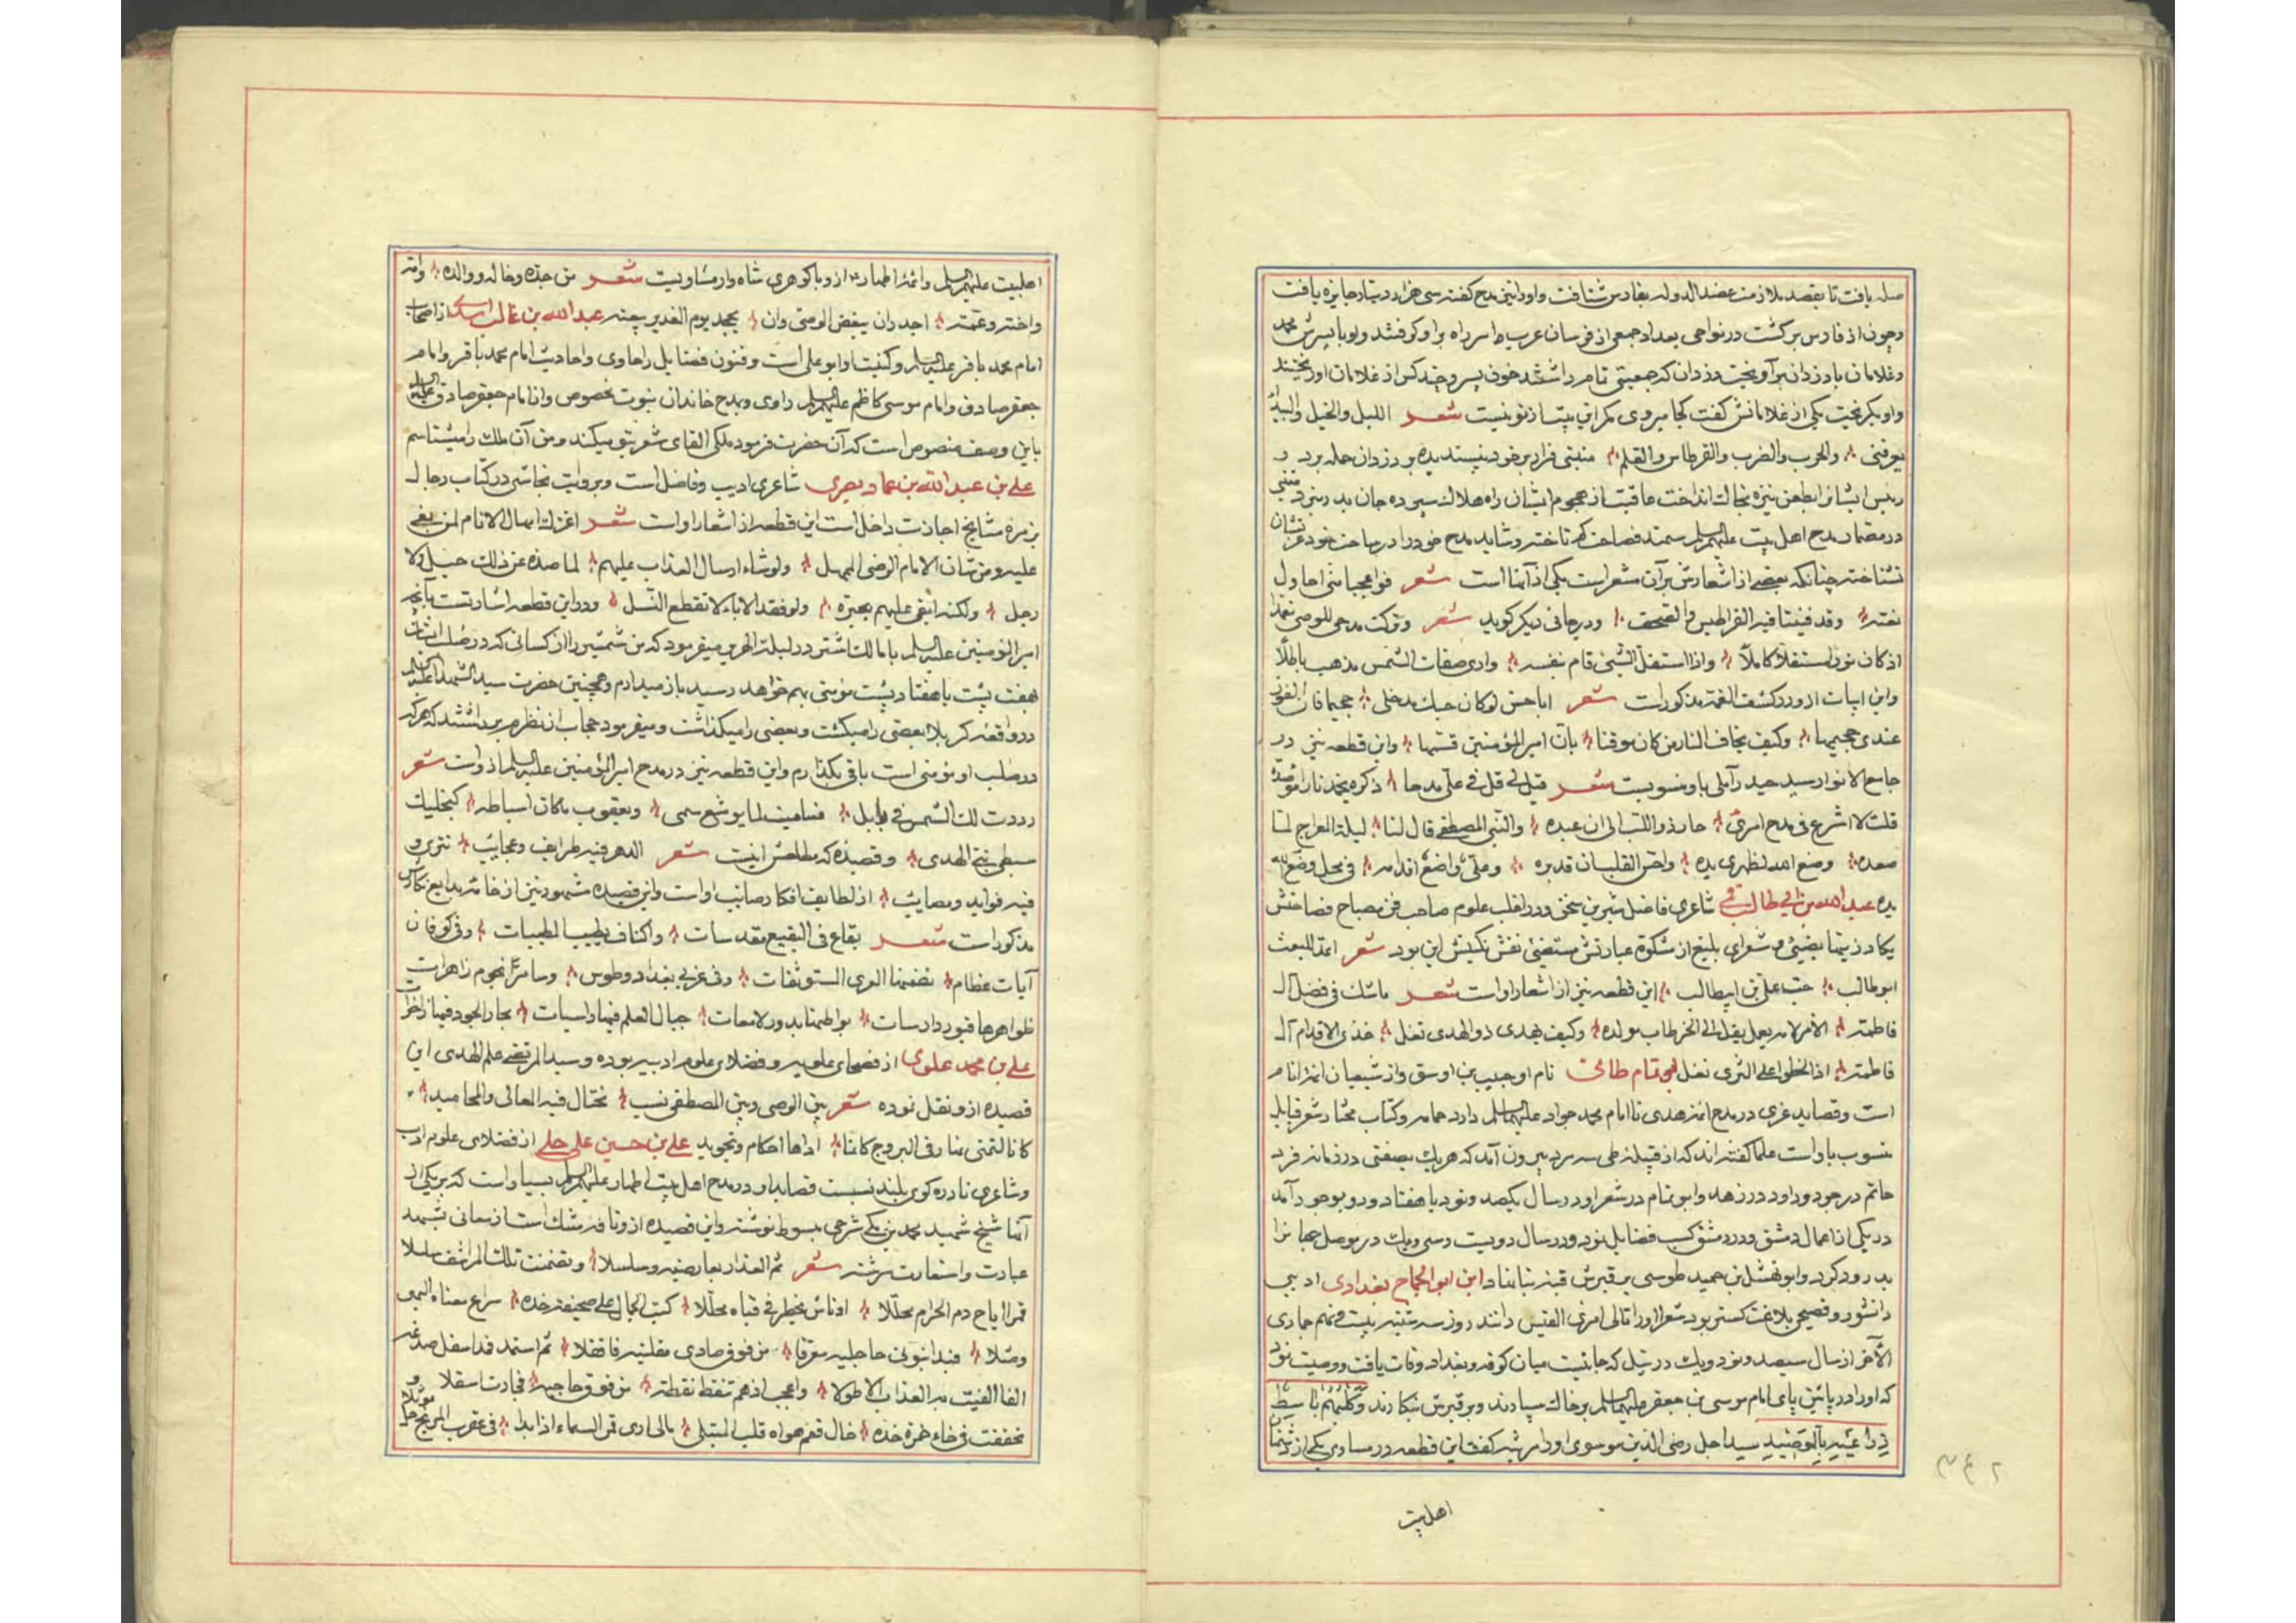 صله یافت تا بقصد ملازمت عضد الدوله بفارس شتافت و او را نیز مدح گفته سی هزار دینار جایزه یافت
و چون از فارس برگشت در نواحی بغداد جمعی از فرسان عرب سر راه بر او گرفتند و او با پسرش محمد
و غلامان با دزدان برآویخت دزدان که جمعیتی تمام داشتند خون پسر و چند کس از غلامان او ریختند
و او بگریخت یکی از غلامانش گفت کجا میروی مگر این بیت از تو نیست شعر اللیل والخیل والبیداء
تعرفنی والحرب والضرب والقرطاس والقلم متنبی فرار بر خود نپسندیده بر دزدان حمله برد و
رئیس ایشانرا بطعن نیزه بخاک انداخت عاقبت از هجوم ایشان راه هلاک سپرده جان بدر نبرد متنبی
در مضمار مدح اهل بیت علیهم السلم سمند فصاحت گرم تاخته و شاید مدح خود را در ساحت خود عزّتشان
نشناخته چنانکه بعضی از اشعارش بر آن مشعر است یکی از آنها است شعر فواعجبا منی احاول
نعته وقد فنیت فیه القراطیس والصحف و در جائی دیگر گوید شعر وترکت مدحی للوصی تعمدا
اذ کان نورا مستقلا کاملا واذا استقل الشیء قام بنفسه واری صفات الشمس تذهب باطلا
و این ابیات از او در کشف الغمه مذکور است شعر ابا حسن لو کان حبک مدخلی جحیما فان الفوز
عندی جحیمها وکیف یخاف النار من کان موقنا بان امیر المؤمنین قسیمها و این قطعه نیز در
جامع الانوار سید حیدر آملی باو منسوبست شعر قیل لی قل فی علی مدحا ذکره یخمد نارا مؤصده
قلت لا اشرع فی مدح امرئ حار ذو اللب الی ان عبده والنبی المصطفی قال لنا لیلة المعراج لما
صعده وضع الله لظهری یده واحس القلب ان قد برده وعلی واضع اقدامه فی محل وضع الله
یده عبد الله بن ابی طالب قمی شاعری فاضل شیرین سخن و در اغلب علوم صاحب فن مصباح فصاحتش
یکاد زیتها یضیئ و شعرای بلیغ از مشکوة عبارتش مستضیئ نقش نگینش این بود شعر اعد للبعث
ابو طالب حب علی بن ابیطالب این قطعه نیز از اشعار او است شعر ما شک فی فضل آل
فاطمة الا امرؤ ما لام بعل بقل الی الخر طاب مولده وکیف یهدی ذو الهدی تغل خذی الاقدام آل
فاطمة اذا الخطوا علی الثری نغل ابو تمام طائی نام او حبیب بن اوس و از شیعیان ائمه انام
است و قصاید غری در مدح ائمه هدی تا امام محمد جواد علیهم السلم دارد حماسه و کتاب مختار شعر قبایل
منسوب باو است علما گفته اند که از قبیله طی سه مرد بیرون آمد که هر یک بصفتی در زمانه فرد
حاتم در جود و داود در زهد و ابو تمام در شعر او در سال یکصد و نود یا هفتاد و دو بوجود آمد
در یکی از اعمال دمشق و در دمشق کسب فضایل نمود و در سال دویست و سی و یک در موصل جهانرا
بدرود کرد و ابو نهشل بن حمید طوسی بر قبرش قبه بنا نهاد ابن ابو الحجاج بغدادی ادیبی
دانشور و فصیحی بلاغت گستر بود شعرا او را تالی امرئ القیس دانند روز سه شنبه بیست و نهم جمادی
الآخر از سال سیصد و نود و یک در نیل که جائیست میان کوفه و بغداد وفات یافت و وصیت نمود
که او را در پائین پای امام موسی بن جعفر علیهما السلم بر خاک سپارند و بر قبرش بنگارند وَکَلْبُهُمْ بَاسِطٌ
ذِرَاعَیْهِ بِالْوَصِیدِ سید اجل رضی الدین موسوی او را مرثیه گفت این قطعه در مساوی یکی از دشمنان
اهل بیت
۲۴۲
اهلبیت علیهم السلم و ائمهٔ اطهار از او با گوهری شاه وار مساویست شعر من جده وخاله ووالده وامه
واخته وعمته اجدر ان یبغض الوصی وان یجحد یوم الغدیر بیعته عبد الله بن غالب اسدی از اصحاب
امام محمد باقر علیه السلم و کنیت او ابو علی است و فنون فضایل را حاوی و احادیث امام محمد باقر و امام
جعفر صادق و امام موسی کاظم علیهم السلم راوی و بمدح خاندان نبوت مخصوص و از امام جعفر صادق علیه السلم
باین وصف منصوص است که آن حضرت فرمود ملکی القای شعر بتو میکند و من آن ملک را میشناسم
علی بن عبد الله بن عماد بصری شاعری ادیب و فاضل است و بروایت نجاشی در کتاب رجال
بزمره مشایخ اجازت داخل است این قطعه از اشعار او است شعر اغرک امهال الانام لمن بغی
علیه ومن شان الامام الرضی المهل ولو شاء ارسال العذاب علیهم لما صده عن ذلک خیل ولا
رجل ولکنه ابقی علیهم بحیرة ولو فقد الاباء لا نقطع النسل و در این قطعه اشارتست بآنچه
امیر المؤمنین علیه السلم با مالک اشتر در لیلة الهریر میفرمود که من شمشیر را از کسانی که در صلب ایشان
هفت پشت یا هفتاد پشت مؤمنی بهم خواهد رسید باز میدارم و همچنین حضرت سید الشهداء علیه السلم
در واقعهٔ کربلا بعضی را میکشت و بعضی را میگذاشت و میفرمود حجاب از نظرم برداشتند که هر که
در صلب او مؤمنی است باقی بگذارم و این قطعه نیز در مدح امیر المؤمنین علیه السلم از او است شعر
رددت لک الشمس فی بابل فسامیت لما یوشع سمی ویعقوب ما کان اسباطه کنجلیک
سبطی نبی الهدی و قصیدهٔ که مطلعش اینست شعر الدهر فیه طرایف وعجایب تتری و
فیه فواید ومصایب از لطایف افکار صائب او است و این قصیده مشهوره نیز از خامهٔ بدایع نگارش
مذکور است شعر بقاع فی البقیع مقدسات واکناف بطیب طیبات وفی کوفان
آیات عظام تضمنها العری المتوثقات وفی غربی بغداد وطوس وسامرّا نجوم زاهرات
ظواهرها قبور دارسات بواطنها بدور لامعات جبال العلم فیها راسیات بحار الجود فیها زاخرات
علی بن محمد علوی از فصحای علویه و فضلای علوم ادبیه بوده و سید المرتضی علم الهدی این
قصیده از او نقل نموده شعر بین الوصی وبین المصطفی نسب تختال فیه المعالی والمحامید
کانا لشمس نهار فی البروج کما ادارها احکام وتجوید علی بن حسین علی حلی از فضلای علوم ادب
و شاعری نادره گوی بلند نسبت قصاید او در مدح اهل بیت اطهار علیهم السلم بسیار است که بر یکی از
آنها شیخ شهید محمد بن مکی شرحی مبسوط نوشته و این قصیده از او نافه مشک است از معانی بشهد
عبارت و استعارت سرشته شعر نم العذار بعارضیه وسلسلا وتضمنت تلک المراشف سلسلا
قمرا اباح دم الحرام محللا اذ ناس یخطر فی قباه محللا کتب الجمال علی صحیفة خده سراع معناه البهی
ومثلا فبدا بنونی حاجبیه معرقا من فوق صادی مقلتیه فاقفلا ثم استمد فدا سفل صدغه
الفا الفیت به العذاب الاطولا واعجب اذ هم تنقط نقطة من فوق حاجبه فجادت اسفلا و
تحققت فی خاء غمرة خده خال قعم هواه قلبی المبتلی بالحاری قمر السماء اذا بدا فی عقرب المریخ حل موئلا